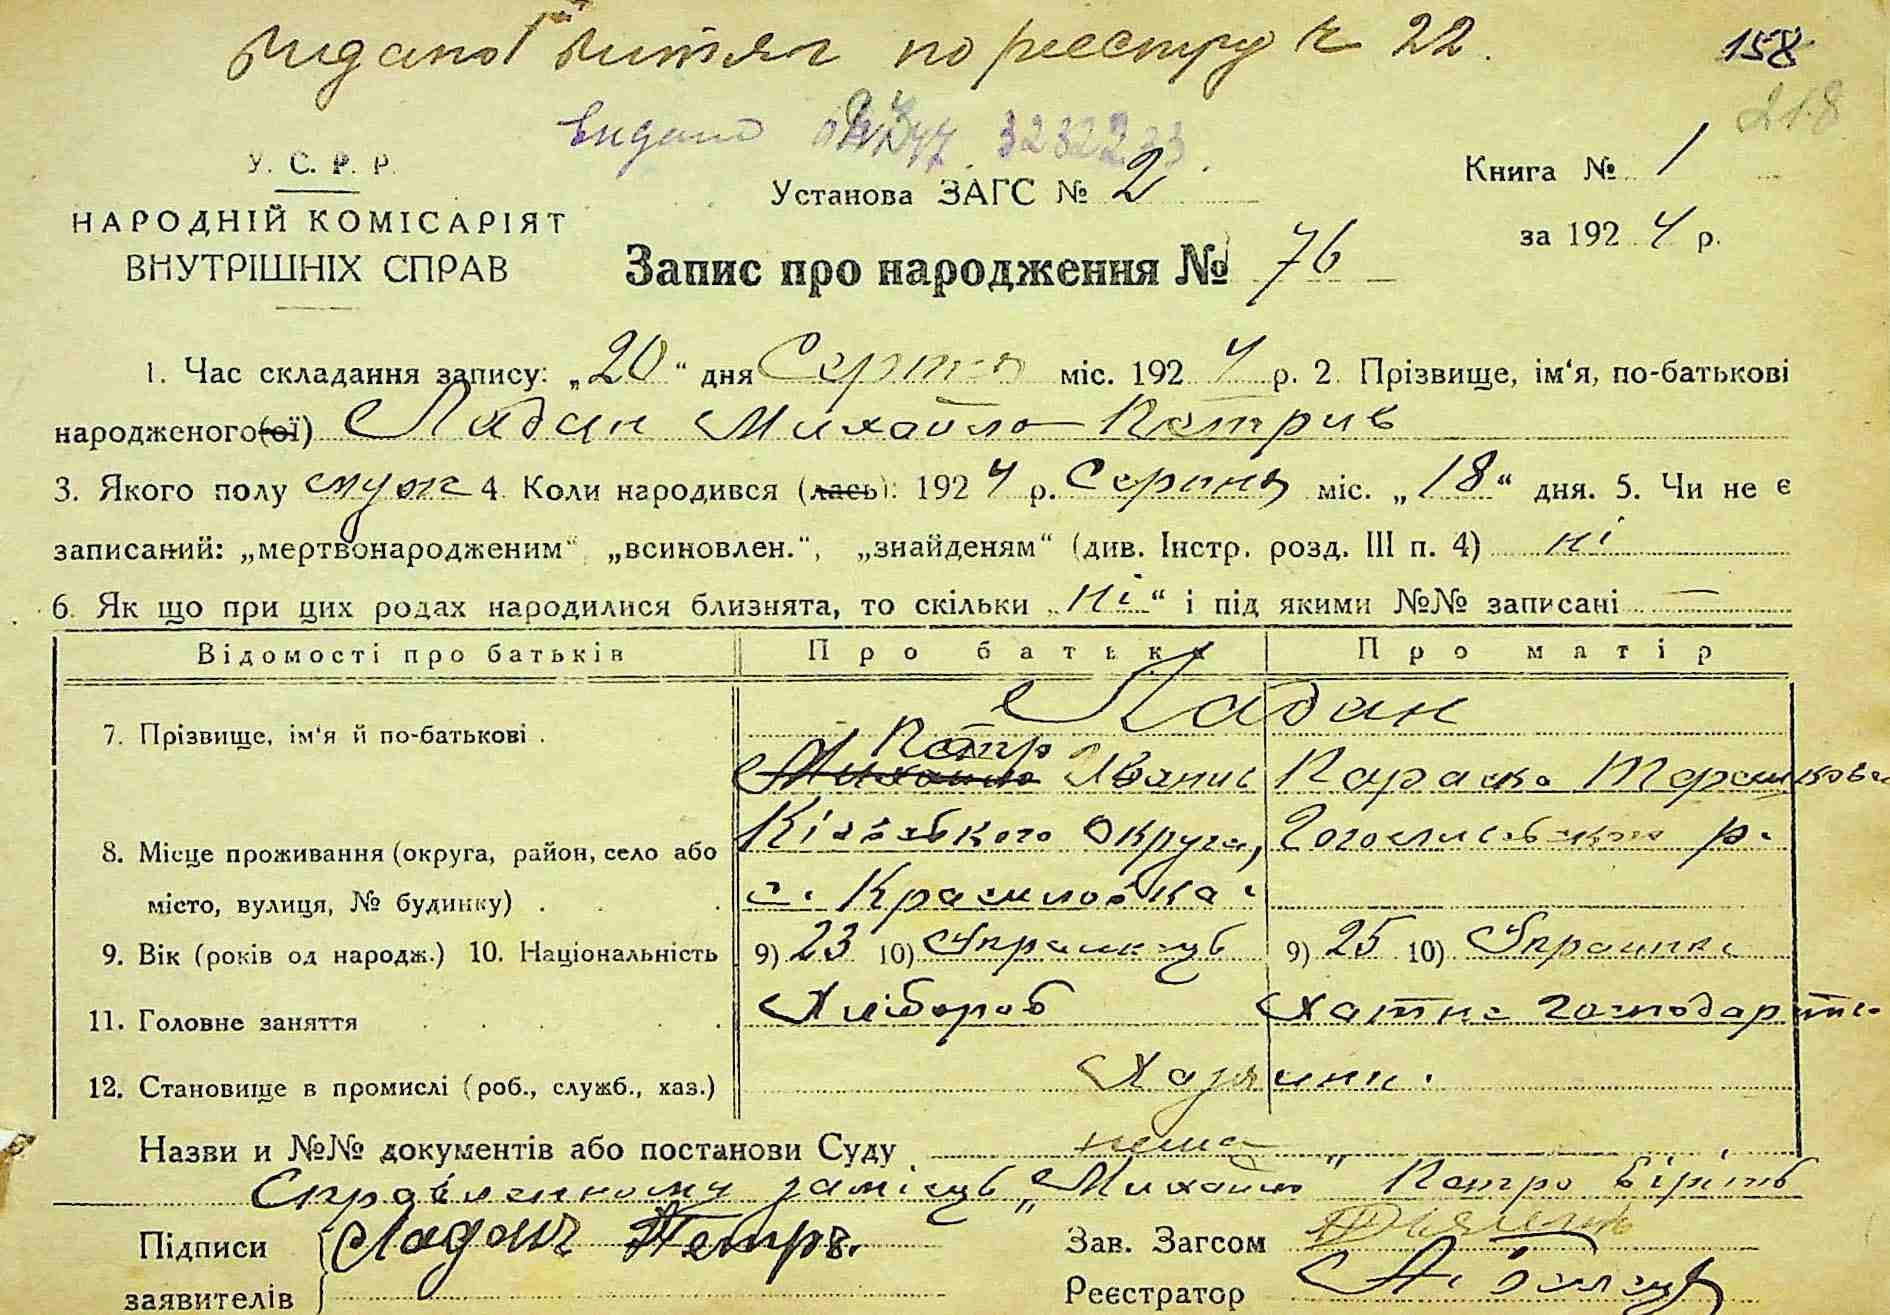 видано витяг по реєстру № 22.
158
218
видано
У. С. Р. Р.
НАРОДНІЙ КОМІСАРІЯТ
ВНУТРІШНІХ СПРАВ
Установа ЗАГС № 2
Запис про народження № 76
Книга № 1
за 1924 р.
1. Час складання запису: „20“ дня Серпня міс. 1924 р. 2. Прізвище, ім‘я, по-батькові
народженого(ої) Ладан Михайло Петрив
3. Якого полу муж 4. Коли народився (лась): 1924 р. Серпня міс. „18“ дня. 5. Чи не є
записаний: „мертвонародженим“, „всиновлен.“, „знайденям“ (див. Інстр. розд. III п. 4) ні
6. Як що при цих родах народилися близнята, то скільки „ні“ і під якими №№ записані —
Відомості про батьків Про батька Про матір
7. Прізвище, ім‘я й по-батькові . Ладан
Петр
Михайло Іванив Параска
8. Місце проживання (округа, район, село або Київського Округа, Гоголивського р.
місто, вулиця, № будинку) . . . с. Красиловка.
9. Вік (років од народж.) 10. Національність 9) 23 10) Украинець 9) 25 10) Украинка
11. Головне заняття . . . . . Хлібороб Хатне господарство
12. Становище в промислі (роб., служб., хаз.) Хазяини.
Назви и №№ документів або постанови Суду нема
Справленному замісць „Михайло“ Петро вірить
Підписи Ладан Петръ.
заявителів
Зав. Загсом
Реєстратор